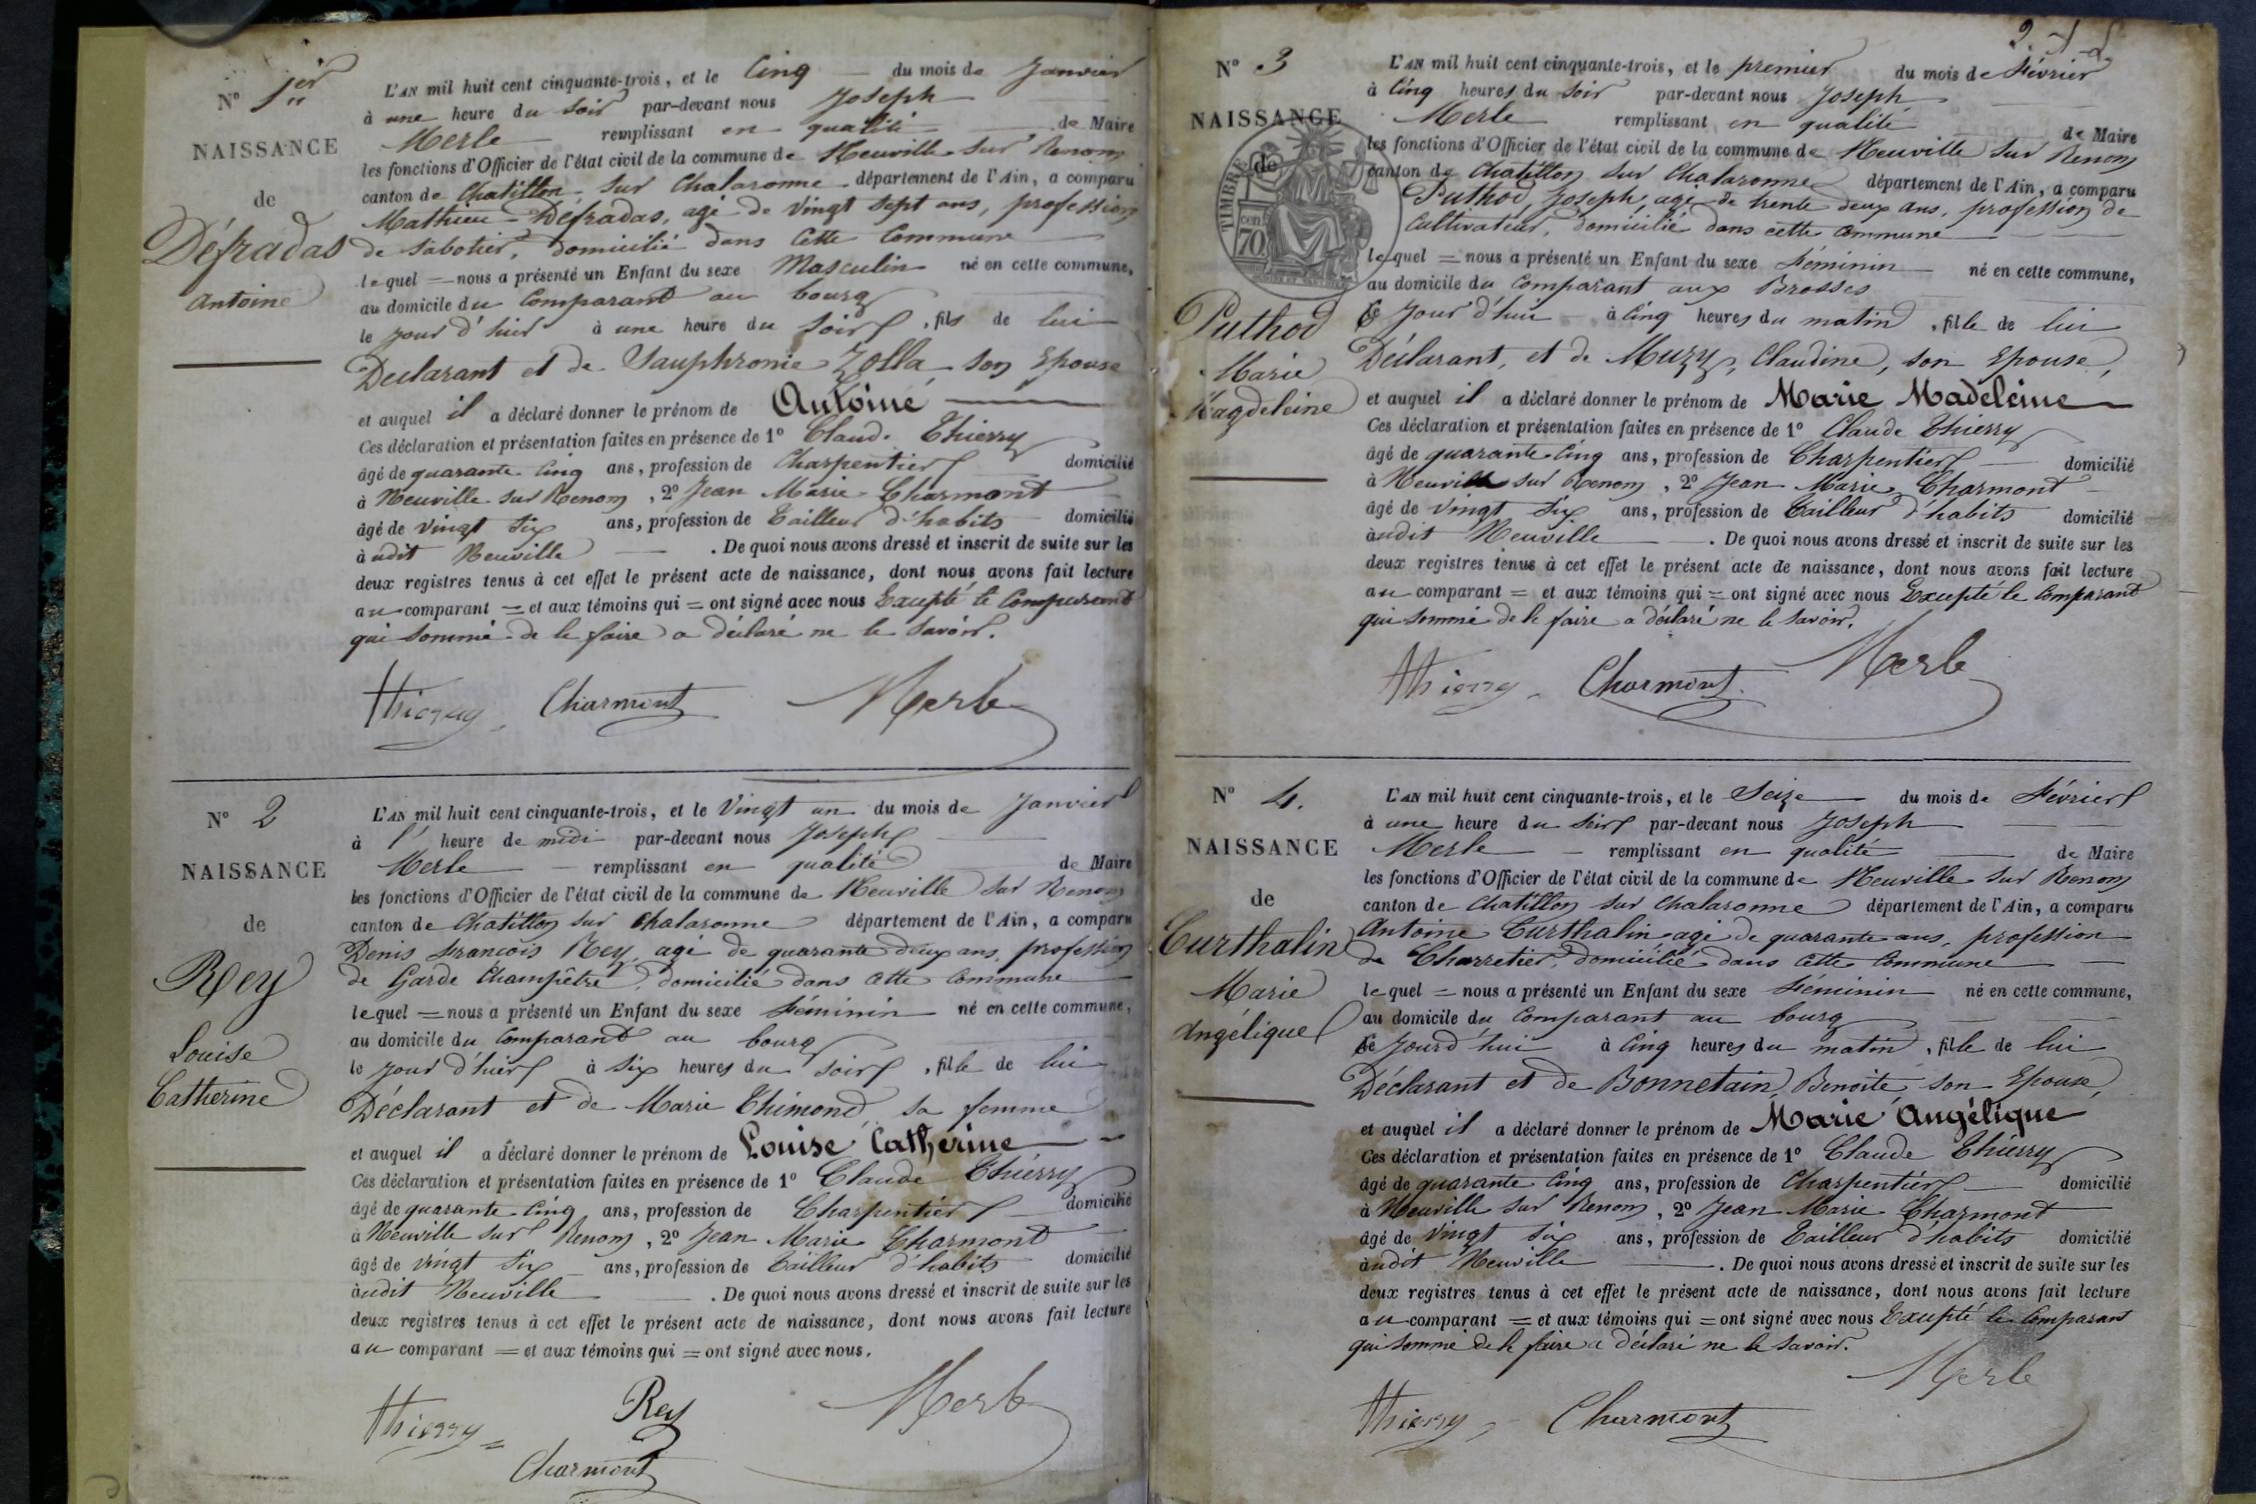 N° 1er
NAISSANCE
de
Défradas
Antoine
L'AN mil huit cent cinquante-trois, et le Cinq du mois de Janvier
à une heure du soir par-devant nous Joseph
Merle remplissant en qualité de Maire
les fonctions d'Officier de l'état civil de la commune de Neuville sur Renom
canton de Chatillon sur Chalaronne département de l'Ain, a comparu
Mathieu Défradas, agé de vingt sept ans, profession
de Sabotier, domicilié dans cette Commune
lequel = nous a présenté un Enfant du sexe Masculin né en cette commune,
au domicile du Comparant au bourg
le jour d'hier à une heure du soir, fils de lui
Déclarant et de Sauphronie Zolla son Epouse
et auquel il a déclaré donner le prénom de Antoine
Ces déclaration et présentation faites en présence de 1° Claude Thierry
âgé de quarante cinq ans, profession de Charpentier domicilié
à Neuville sur Renom, 2° Jean Marie Charmont
âgé de vingt six ans, profession de Tailleur d'habits domicilié
à udit Neuville . De quoi nous avons dressé et inscrit de suite sur les
deux registres tenus à cet effet le présent acte de naissance, dont nous avons fait lecture
au comparant = et aux témoins qui = ont signé avec nous Excepté le Comparant
qui sommé de le faire a déclaré ne le savoir.
Thierry Charmont Merle
N° 2
NAISSANCE
de
Rey
Louise
Catherine
L'AN mil huit cent cinquante-trois, et le Vingt un du mois de Janvier
à l' heure de midi par-devant nous Joseph
Merle remplissant en qualité de Maire
les fonctions d'Officier de l'état civil de la commune de Neuville sur Renom
canton de Chatillon sur Chalaronne département de l'Ain, a comparu
Denis François Rey, agé de quarante deux ans, profession
de Garde Champêtre, domicilié dans cette Commune
lequel = nous a présenté un Enfant du sexe Féminin né en cette commune,
au domicile du Comparant au bourg
le jour d'hier à six heures du soir, fille de lui
Déclarant et de Marie Thimond sa femme
et auquel il a déclaré donner le prénom de Louise Catherine
Ces déclaration et présentation faites en présence de 1° Claude Thierry
âgé de quarante cinq ans, profession de Charpentier domicilié
à Neuville sur Renom, 2° Jean Marie Charmont
âgé de vingt six ans, profession de Tailleur d'habits domicilié
àudit Neuville . De quoi nous avons dressé et inscrit de suite sur les
deux registres tenus à cet effet le présent acte de naissance, dont nous avons fait lecture
au comparant = et aux témoins qui = ont signé avec nous.
Thierry Rey Merle
Charmont
N° 3
NAISSANCE
de
TIMBRE
cen
70
Puthod
Marie
Magdeleine
L'AN mil huit cent cinquante-trois, et le premier du mois de Février
à Cinq heures du soir par-devant nous Joseph
Merle remplissant en qualité de Maire
les fonctions d'Officier de l'état civil de la commune de Neuville sur Renom
canton de Chatillon sur Chalaronne département de l'Ain, a comparu
Puthod, Joseph, agé de trente deux ans, profession de
Cultivateur, domicilié dans cette Commune
lequel = nous a présenté un Enfant du sexe Féminin né en cette commune,
au domicile du Comparant aux Brosses
Ce jour d'hui à cinq heures du matin, fille de lui
Déclarant, et de Muzy, Claudine, son Epouse,
et auquel il a déclaré donner le prénom de Marie Madeleine
Ces déclaration et présentation faites en présence de 1° Claude Thierry
âgé de quarante cinq ans, profession de Charpentier domicilié
à Neuville sur Renom, 2° Jean Marie Charmont
âgé de vingt six ans, profession de Tailleur d'habits domicilié
àudit Neuville . De quoi nous avons dressé et inscrit de suite sur les
deux registres tenus à cet effet le présent acte de naissance, dont nous avons fait lecture
au comparant = et aux témoins qui = ont signé avec nous Excepté le Comparant
qui sommé de le faire a déclaré ne le savoir.
Thierry Charmont Merle
N° 4.
NAISSANCE
de
Curthalin
Marie
Angélique
L'AN mil huit cent cinquante-trois, et le Seize du mois de Février
à une heure du soir par-devant nous Joseph
Merle remplissant en qualité de Maire
les fonctions d'Officier de l'état civil de la commune de Neuville sur Renom
canton de Chatillon sur Chalaronne département de l'Ain, a comparu
Antoine Curthalin agé de quarante ans, profession
de Charretier, domicilié dans cette Commune
lequel = nous a présenté un Enfant du sexe Féminin né en cette commune,
au domicile du Comparant au bourg
Ce jourd'hui à cinq heures du matin, fille de lui
Déclarant et de Bonnetain, Benoite son Epouse,
et auquel il a déclaré donner le prénom de Marie Angélique
Ces déclaration et présentation faites en présence de 1° Claude Thierry
âgé de quarante cinq ans, profession de Charpentier domicilié
à Neuville sur Renom, 2° Jean Marie Charmont
âgé de vingt six ans, profession de Tailleur d'habits domicilié
àudit Neuville . De quoi nous avons dressé et inscrit de suite sur les
deux registres tenus à cet effet le présent acte de naissance, dont nous avons fait lecture
au comparant = et aux témoins qui = ont signé avec nous Excepté le Comparant
qui sommé de le faire a déclaré ne le savoir.
Merle
Thierry Charmont